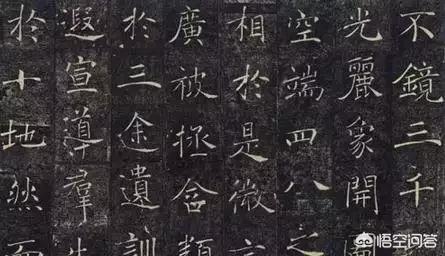 不鏡三千
光麗象開圖
空端四八之
相於是微言
廣被拯含類
於三途遺訓
遐宣導羣生
於十地然而
悟空问答